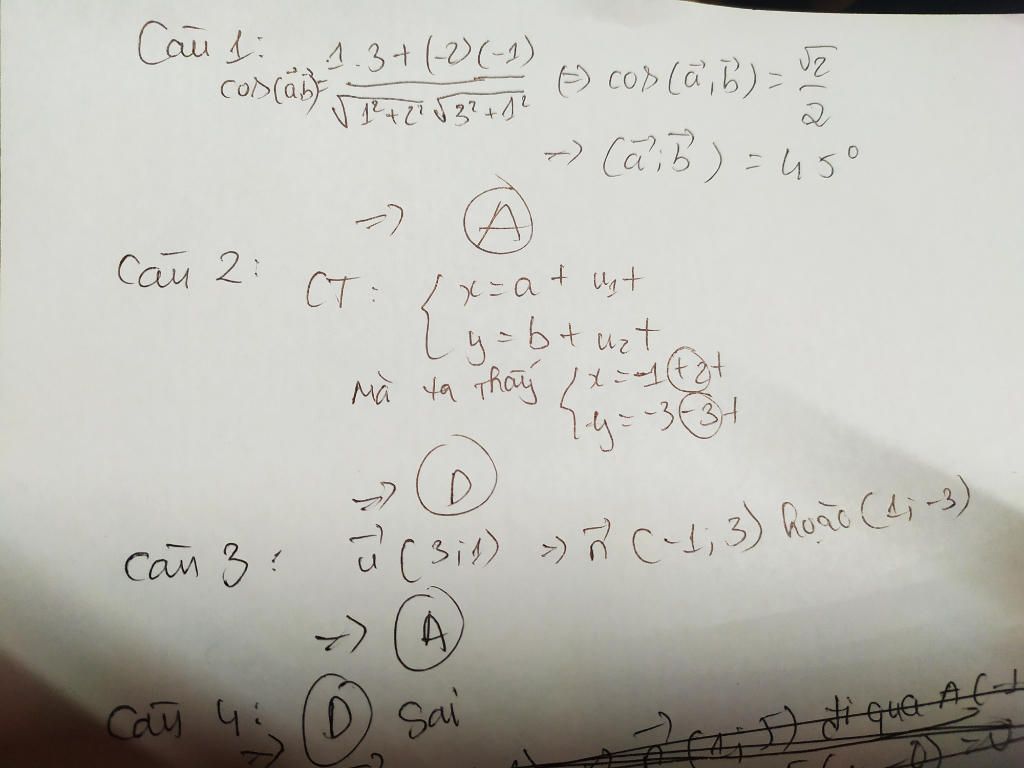 Câu 1: 1.3+(-2)(-1)
cos(a⃗b⃗)= √1²+2² √3²+1² ⇔ cos(a⃗;b⃗) = √2/2
→ (a⃗;b⃗) = 45°
=> A
Câu 2: CT: { x=a+u₁t
y=b+u₂t
Mà ta thấy { x=-1+2t
y=-3-3t
=> D
Câu 3: u⃗(3;1) => n⃗(-1;3) hoặc (1;-3)
=> A
Câu 4: D Sai
=> n⃗(1;5) đi qua A(-1